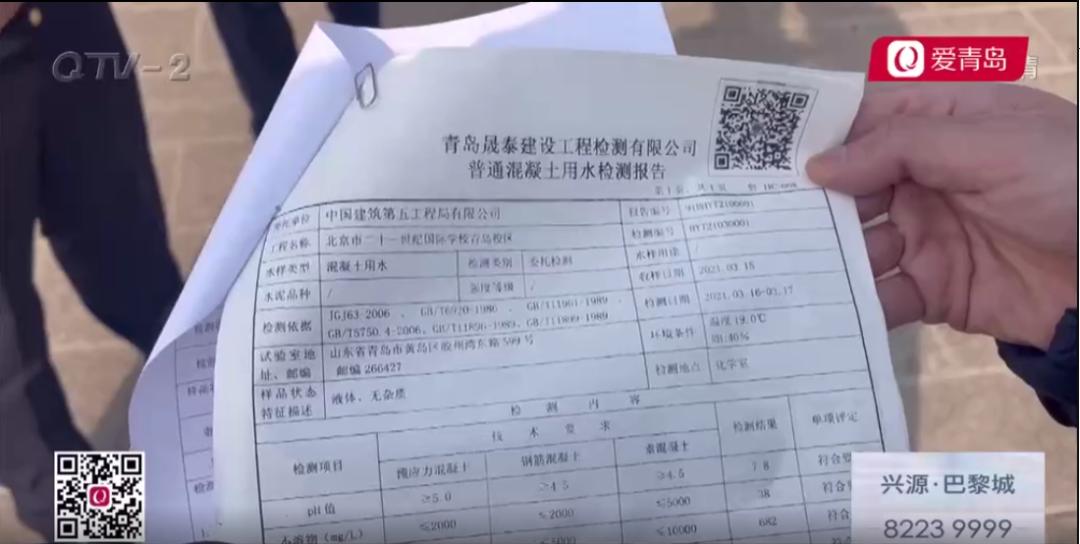 QTV-2
爱青岛
青岛晟泰建设工程检测有限公司
普通混凝土用水检测报告
委托单位 中国建筑第五工程局有限公司 报告编号
工程名称 北京市二十一世纪国际学校青岛校区 检测编号
水样类型 混凝土用水 检测类别 委托检测 水样用途 /
水泥品种 / 强度等级 / 收样日期 2021.03.15
检测依据 JGJ63-2006 、 GB/T6920-1986 、 GB/T11901-1989 、 检测日期 2021.03.16-03.17
GB/T5750.4-2006、GB/T11896-1989、GB/T11899-1989
试验室地址、邮编 山东省青岛市黄岛区胶州湾东路599号 环境条件 温度19.0℃
邮编 266427
样品状态特征描述 液体、无杂质 检测地点 化学室
检 测 内 容
检测项目 技 术 要 求 检测结果 单项评定
预应力混凝土 钢筋混凝土 素混凝土
pH值 ≥5.0 ≥4.5 ≥4.5 7.8 符合要
不溶物(mg/L) ≤2000 ≤2000 ≤5000 38 符合
≤5000 ≤10000 682 符合
兴源·巴黎城
8223 9999